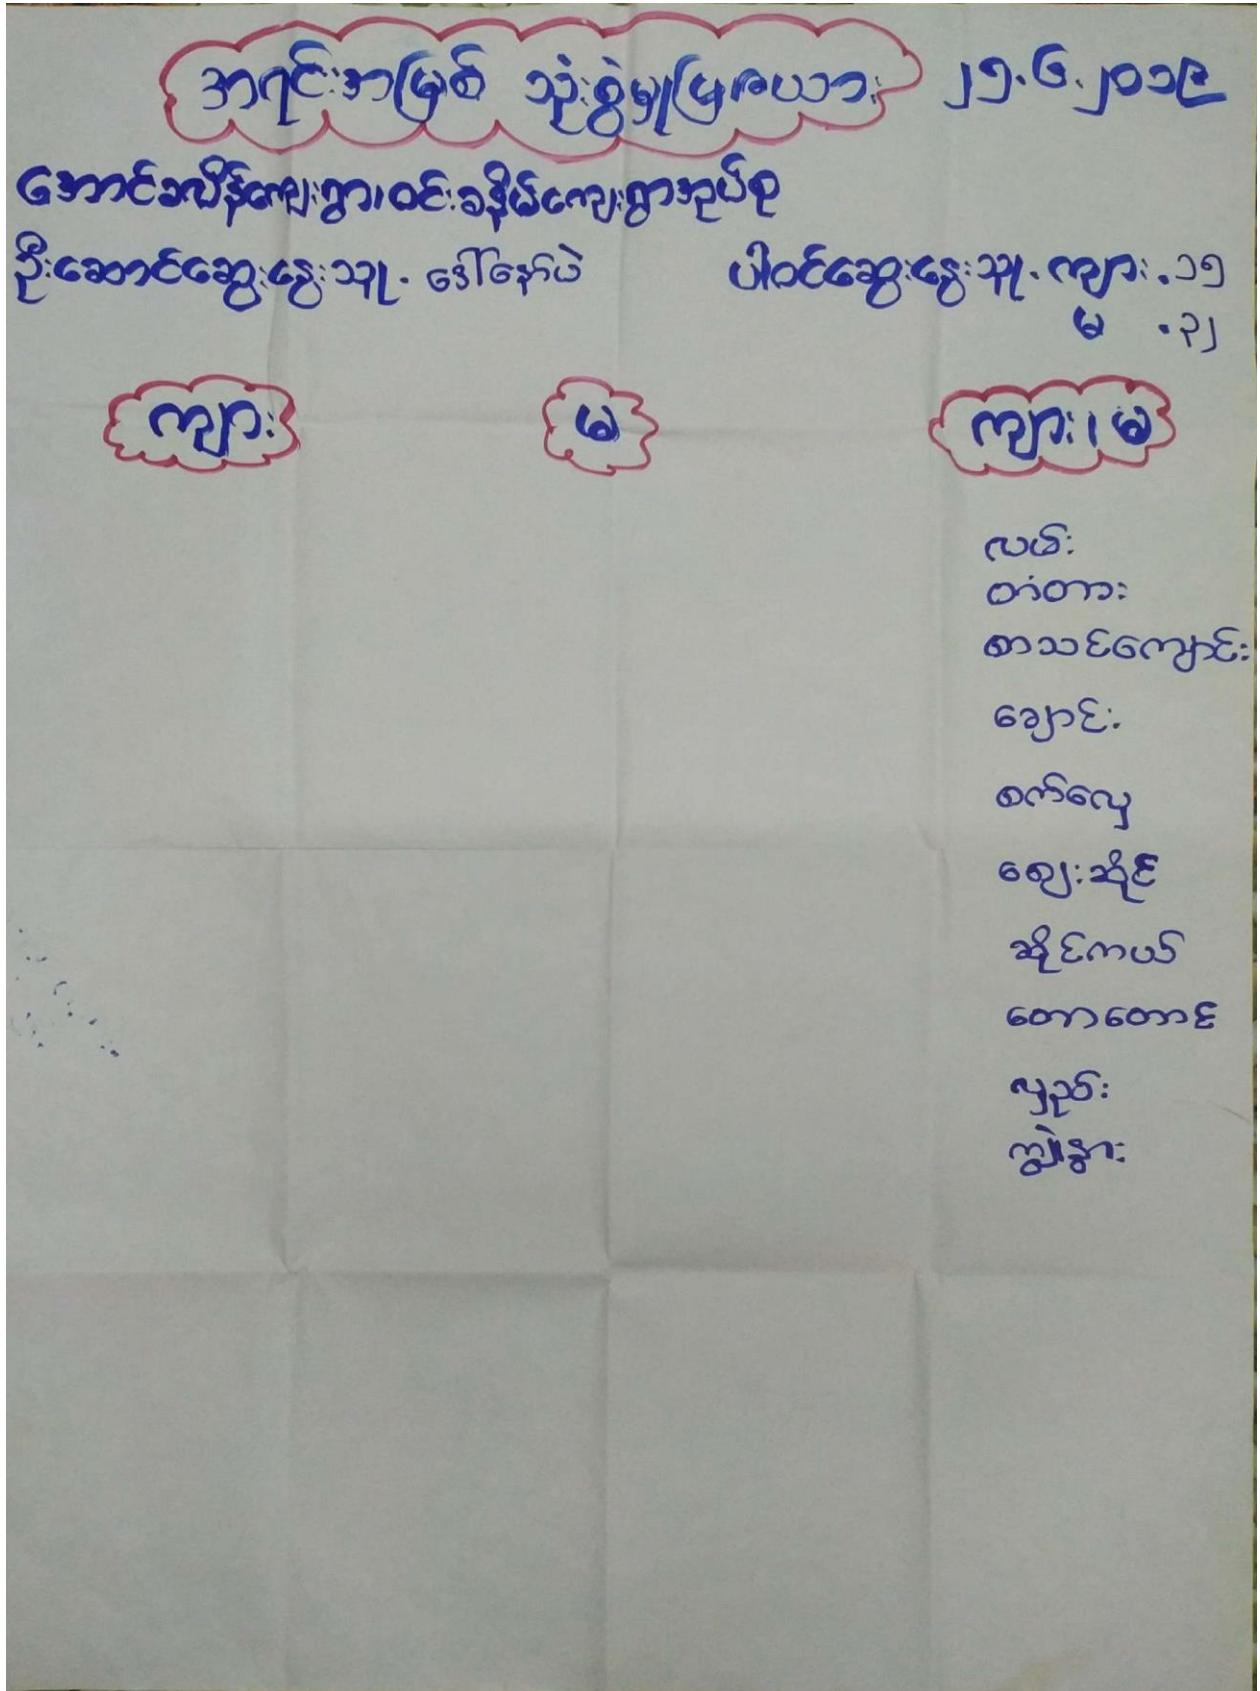 အရင်းအမြစ် သုံးစွဲမှုပြဇယား ၂၅.၆.၂၀၁၉
အောင်ခလိန်ကျေးရွာ၊ဝင်းခနိမ်ကျေးရွာအုပ်စု
ဦးဆောင်ဆွေးနွေးသူ. ဒေါ်နော်ပဲ ပါဝင်ဆွေးနွေးသူ. ကျား .၁၅
မ .၃၂
ကျား မ ကျား၊မ
လမ်း
တံတား
စာသင်ကျောင်း
ချောင်း
စက်လှေ
ဈေးဆိုင်
ဆိုင်ကယ်
တောတောင်
လှည်း
ကျွဲနွား